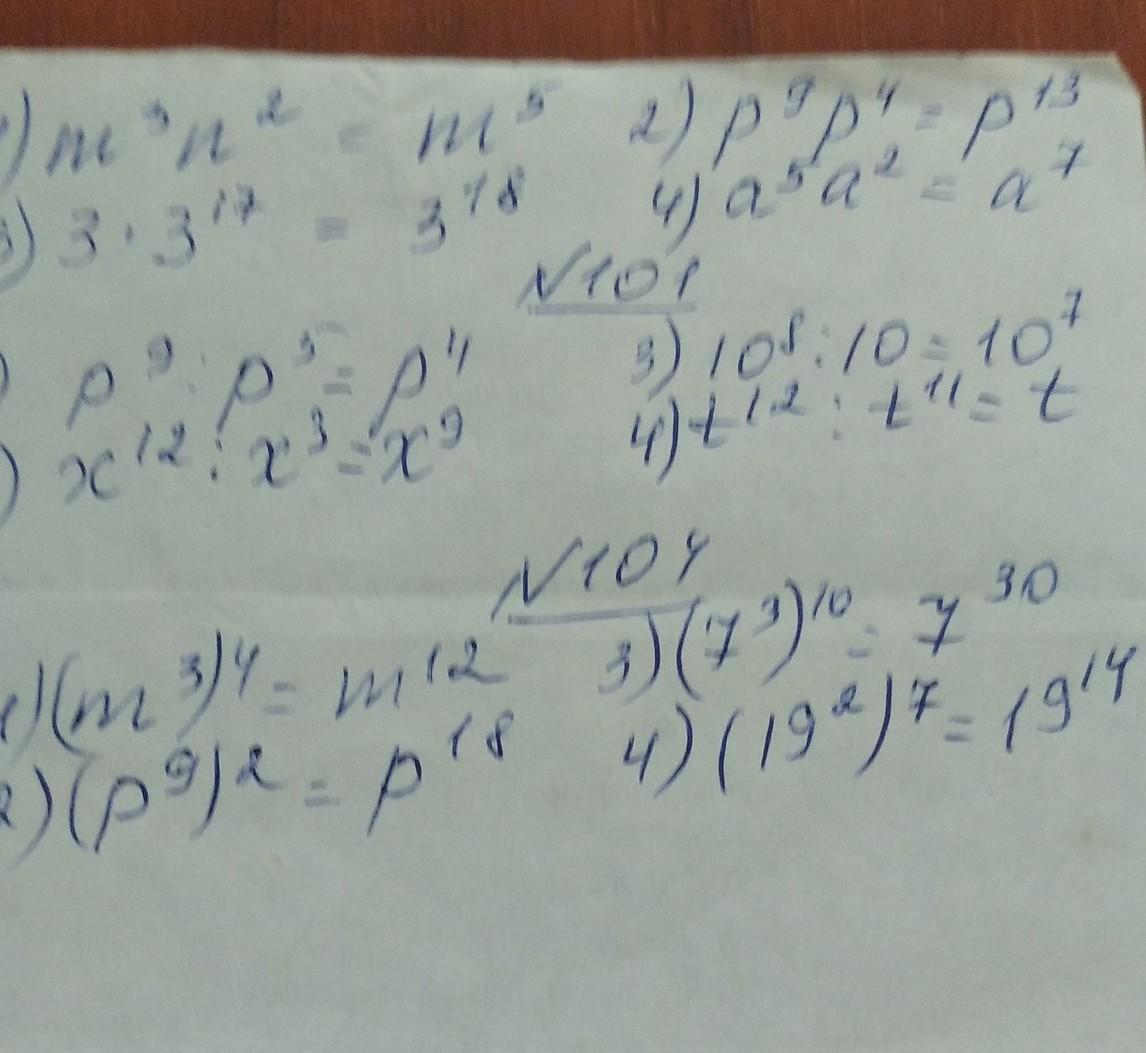 1) m³n² = m⁵ 2) p⁹p⁴ = p¹³
3) 3 · 3¹⁷ = 3¹⁸ 4) a⁵a² = a⁷
№101
) p⁹ : p⁵ = p⁴ 3) 10⁸ : 10 = 10⁷
) x¹² : x³ = x⁹ 4) t¹² : t¹¹ = t
№104
1) (m³)⁴ = m¹² 3) (7³)¹⁰ = 7³⁰
2) (p⁹)² = p¹⁸ 4) (19²)⁷ = 19¹⁴